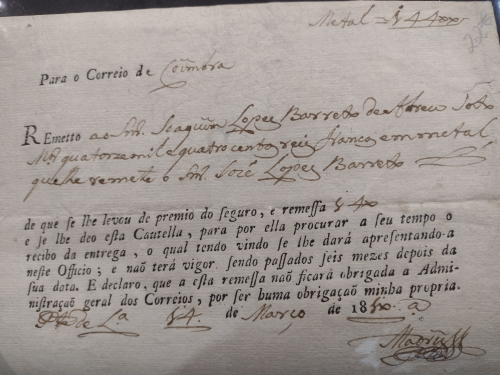 Metal = 14400
Para o Correio de Coimbra
REmetto ao Snr. Joaquim Lopes Barreto de Abreu
quatorze mil e quatro centos reis franca em metal
que lhe remete o Snr. José Lopes Barreto
de que se lhe levou de premio do seguro, e remessa
e se lhe deo esta Cautella, para por ella procurar a seu tempo o
recibo da entrega, o qual tendo vindo se lhe dará apresentando-a
neste Officio; e naõ terá vigor sendo passados seis mezes depois da
sua data. E declaro, que a esta remessa naõ ficará obrigada a Admi-
nistraçaõ geral dos Correios, por ser huma obrigaçaõ minha propria.
de Março de 18